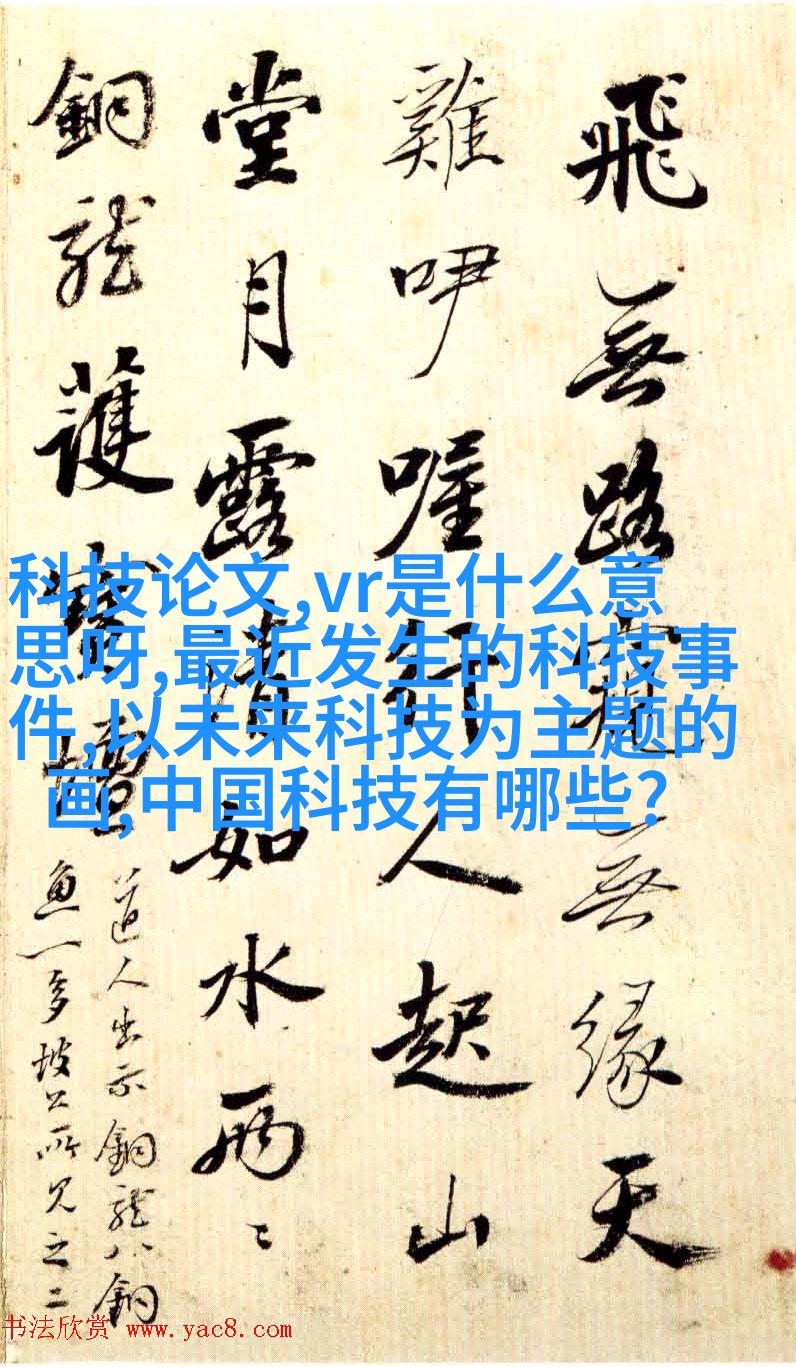 飛無路寵無緣天
雞咿喔行人起山
堂月露清如水兩〻
銅龍護寶壇
道人出示銅龍八銅
魚一多坡公所見之二
科技论文,vr是什么意
思呀,最近发生的科技事
件,以未来科技为主题的
画,中国科技有哪些?
书法欣赏 www.yac8.com